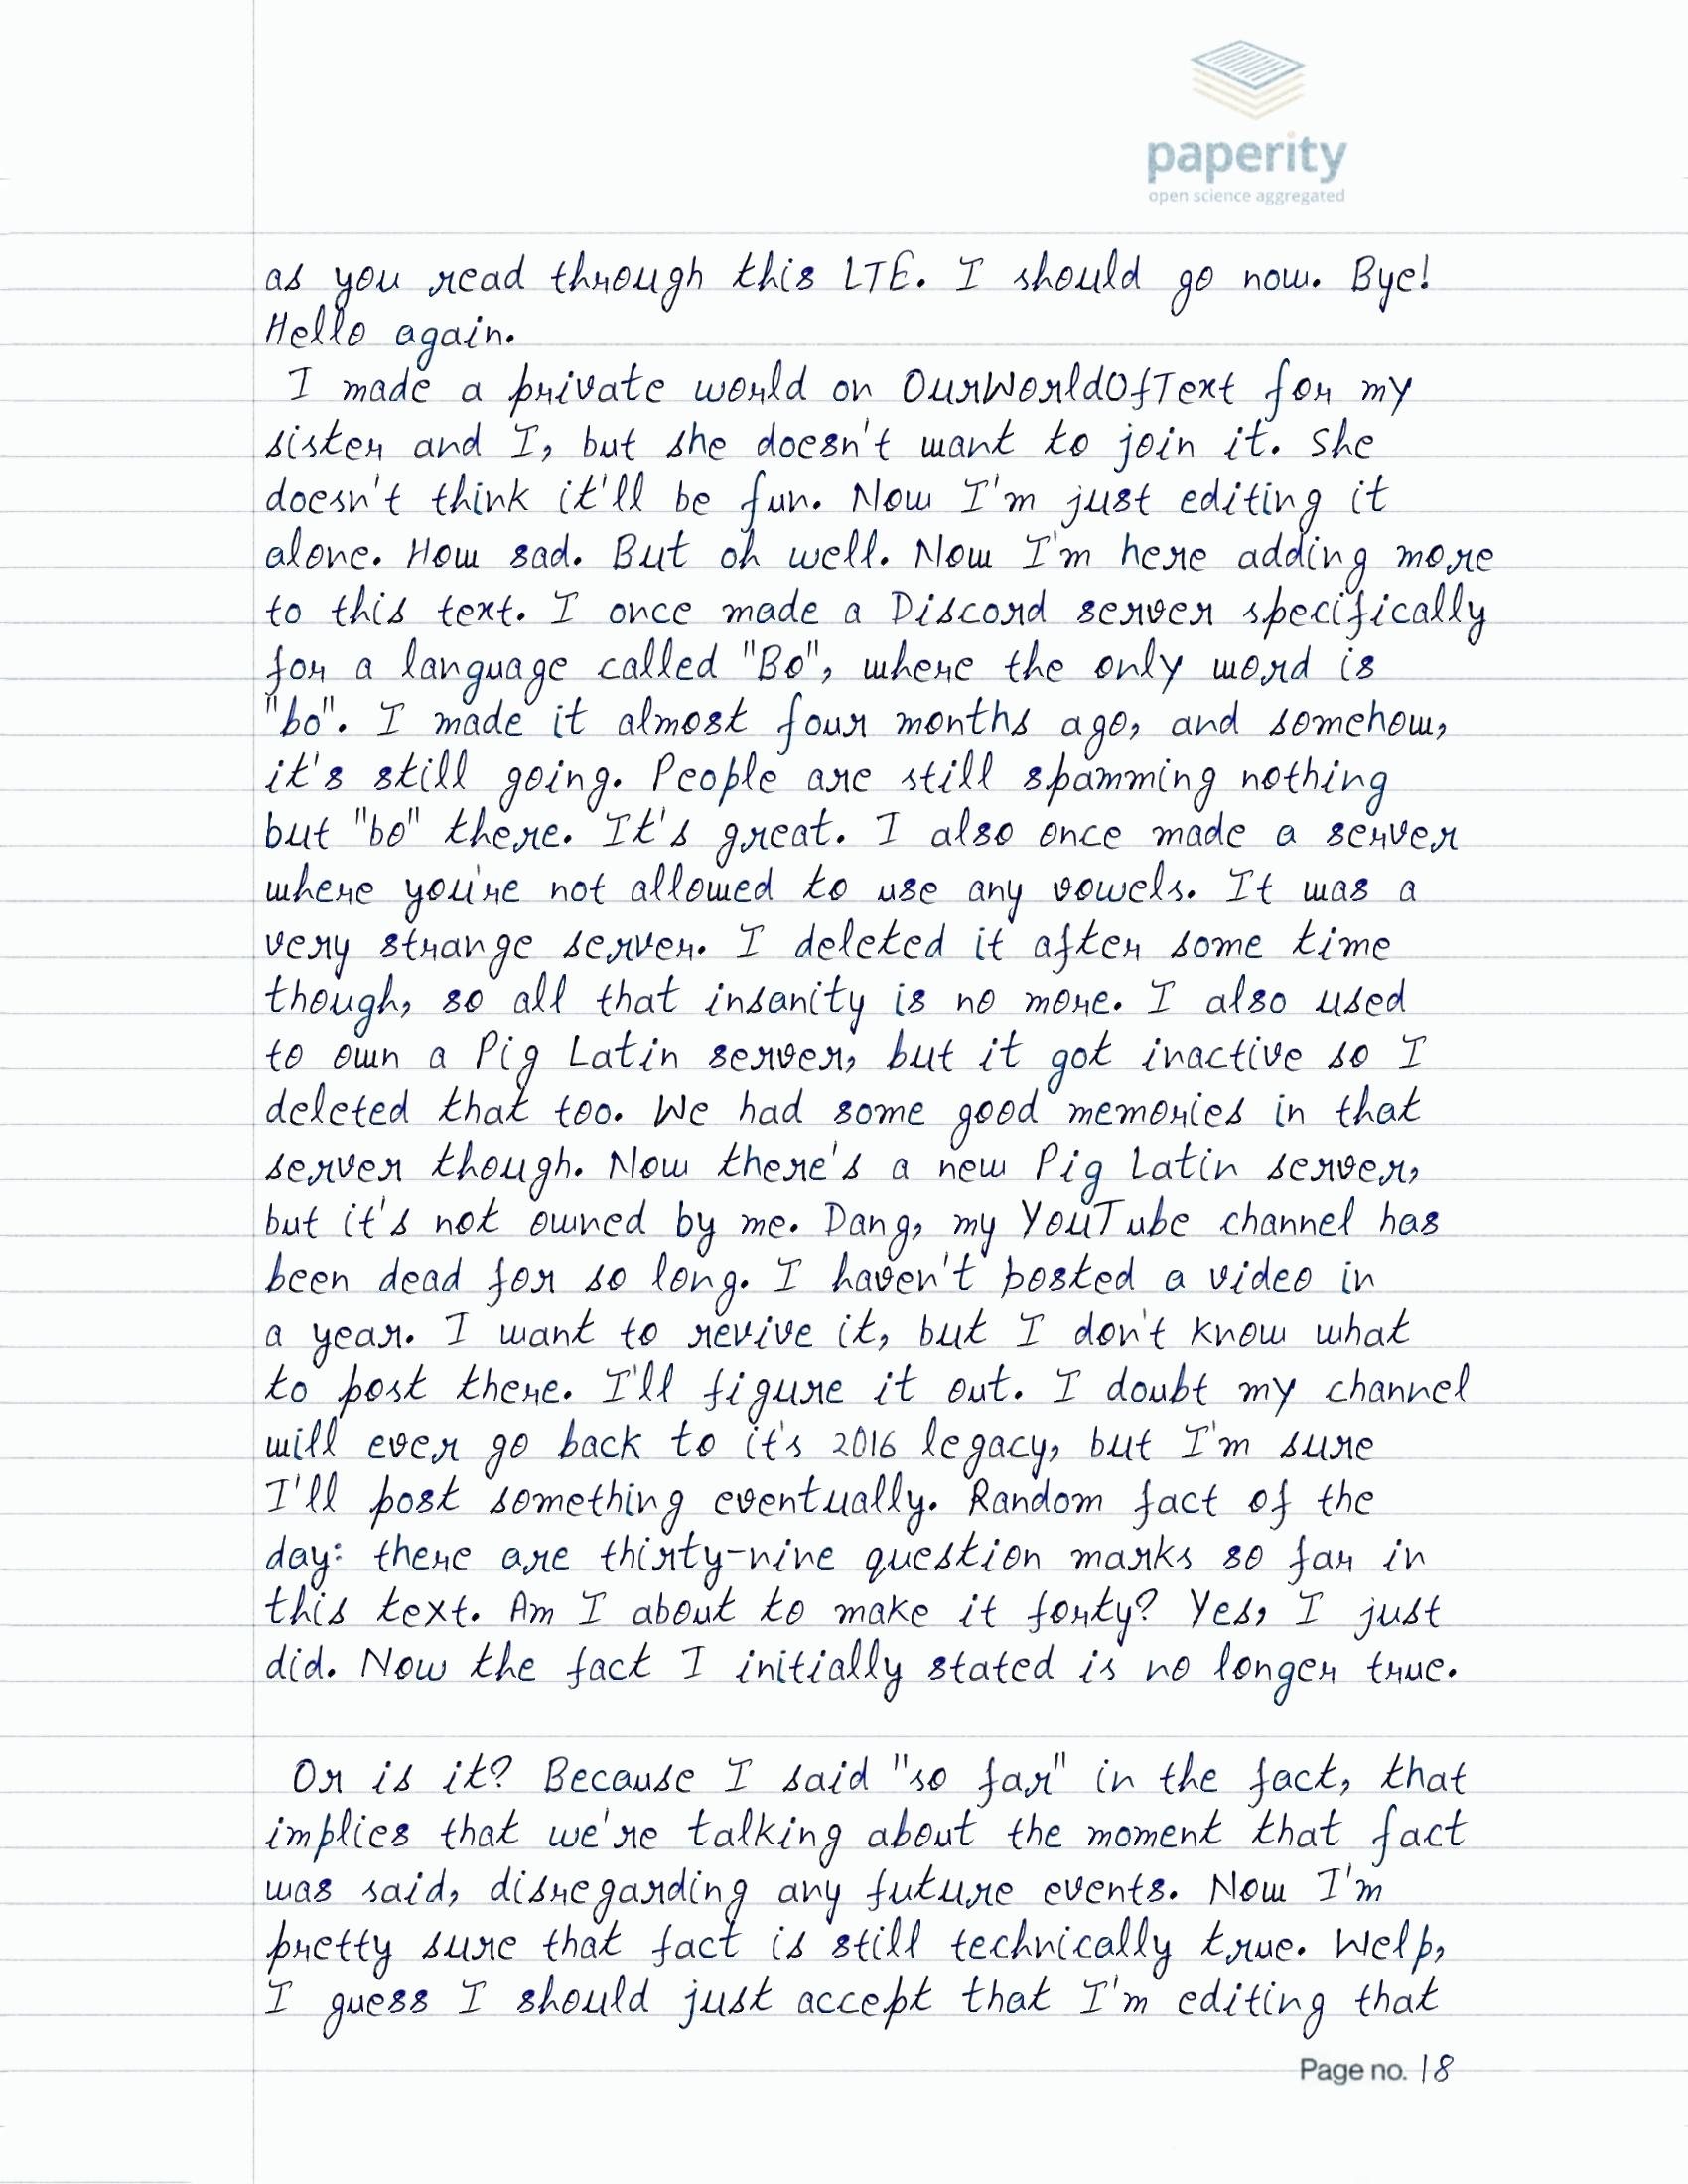 paperity
open science aggregated
as you read through this LTE. I should go now. Bye!
Hello again.
I made a private world on OurWorldOfText for my
sister and I, but she doesn't want to join it. She
doesn't think it'll be fun. Now I'm just editing it
alone. How sad. But oh well. Now I'm here adding more
to this text. I once made a Discord server specifically
for a language called "Bo", where the only word is
"bo". I made it almost four months ago, and somehow,
it's still going. People are still spamming nothing
but "bo" there. It's great. I also once made a server
where you're not allowed to use any vowels. It was a
very strange server. I deleted it after some time
though, so all that insanity is no more. I also used
to own a Pig Latin server, but it got inactive so I
deleted that too. We had some good memories in that
server though. Now there's a new Pig Latin server,
but it's not owned by me. Dang, my YouTube channel has
been dead for so long. I haven't posted a video in
a year. I want to revive it, but I don't know what
to post there. I'll figure it out. I doubt my channel
will ever go back to it's 2016 legacy, but I'm sure
I'll post something eventually. Random fact of the
day: there are thirty-nine question marks so far in
this text. Am I about to make it forty? Yes, I just
did. Now the fact I initially stated is no longer true.
Or is it? Because I said "so far" in the fact, that
implies that we're talking about the moment that fact
was said, disregarding any future events. Now I'm
pretty sure that fact is still technically true. Welp,
I guess I should just accept that I'm editing that
Page no. 18